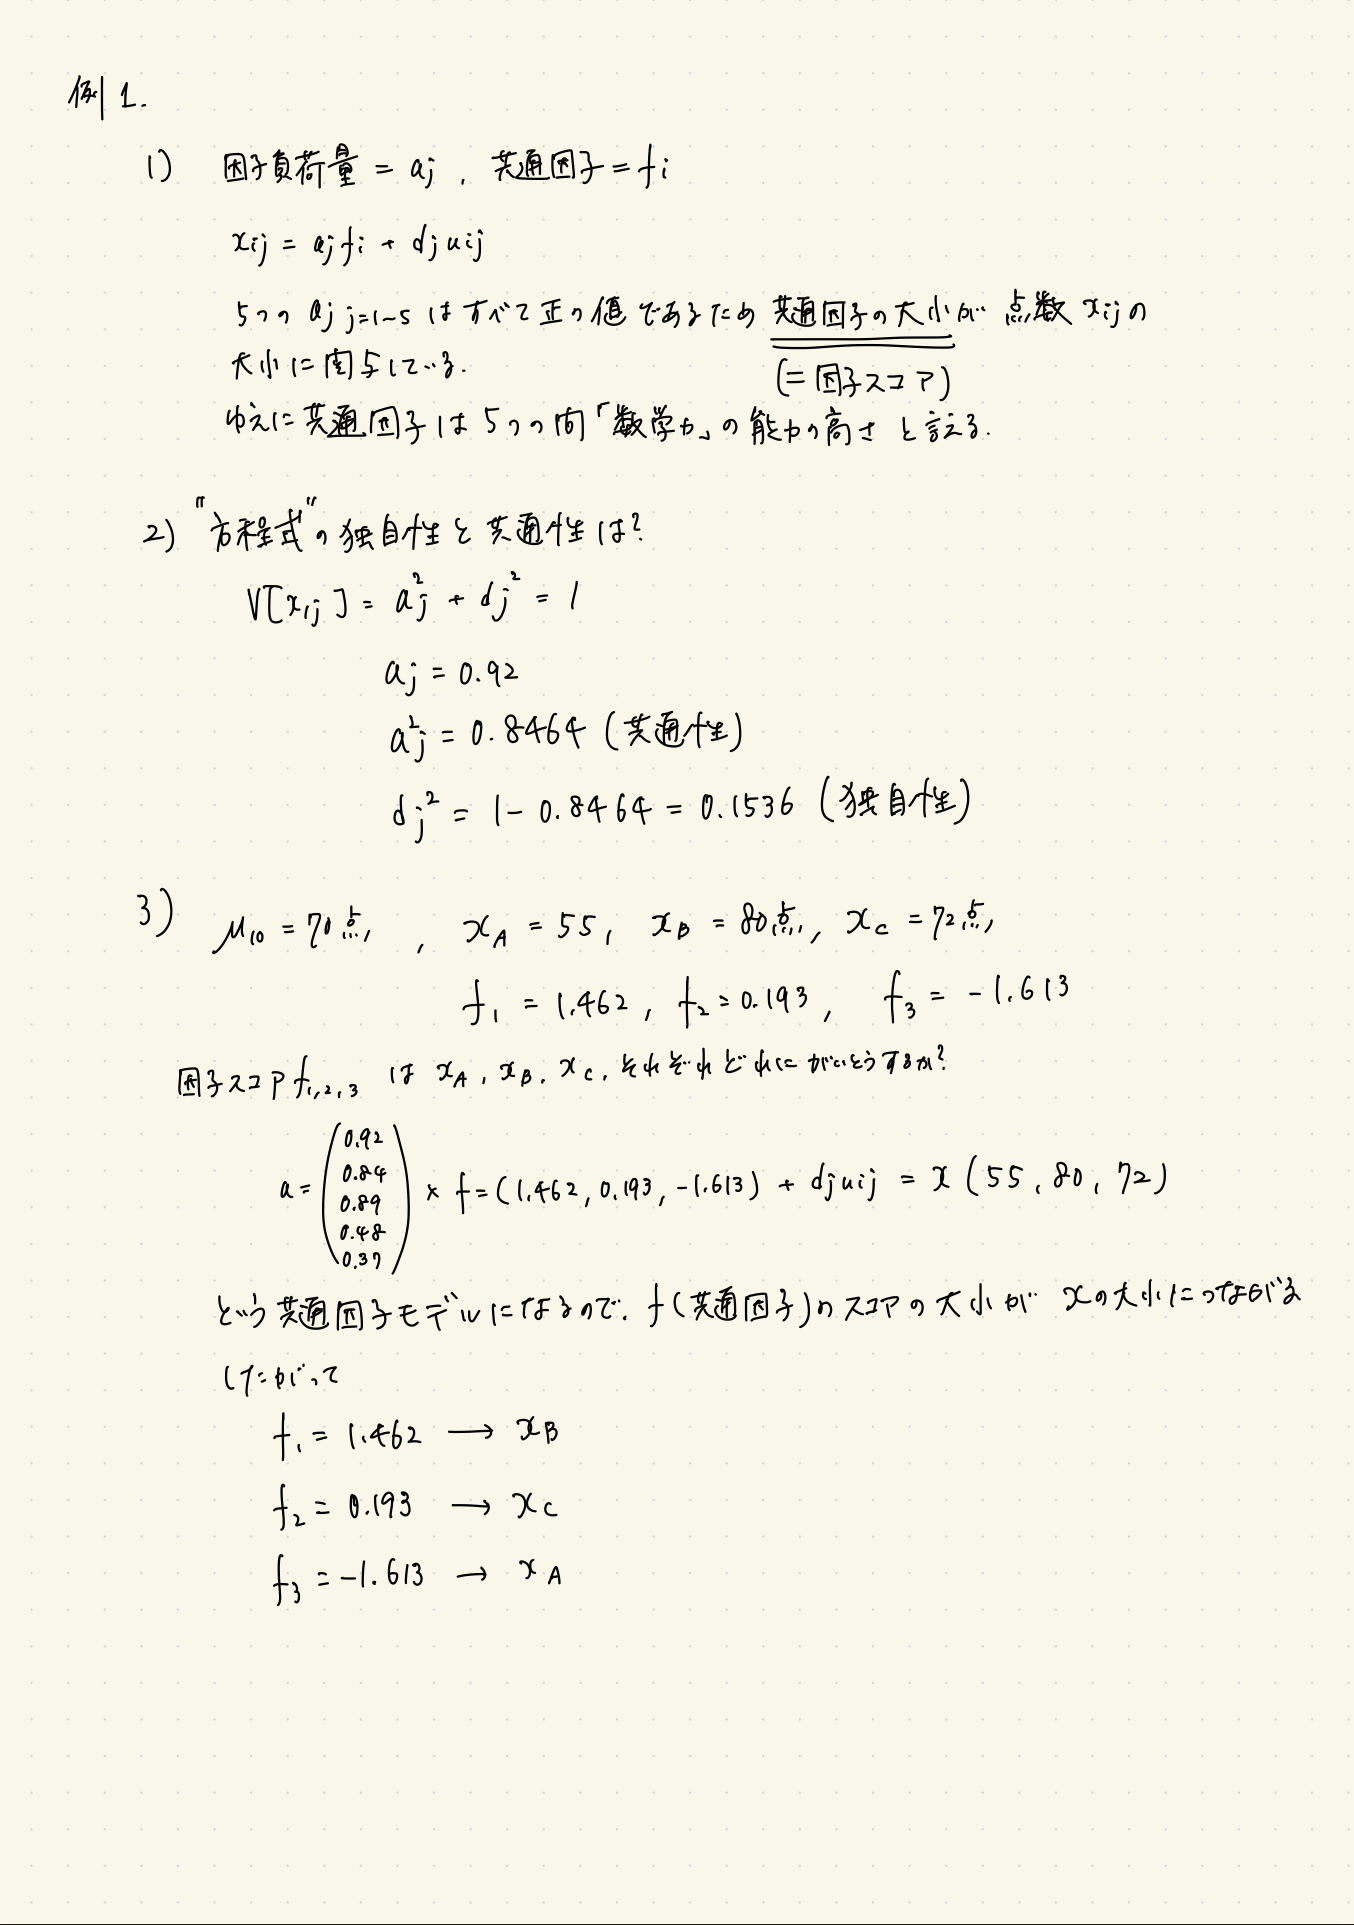 例 1.
1) 因子負荷量 = aj , 共通因子 = fi
xij = ajfi + djuij
5つの aj j=1~5 はすべて正の値であるため 共通因子の大小が 点数 xijの
大小に関与している.
(= 因子スコア)
ゆえに共通因子は 5つの問「数学力」の能力の高さ と言える.
2) "方程式"の独自性と共通性は?
V[xij] = aj² + dj² = 1
aj = 0.92
aj² = 0.8464 (共通性)
dj² = 1 - 0.8464 = 0.1536 (独自性)
3) μ10 = 70点, , xA = 55, xB = 80点, xC = 72点,
f1 = 1.462, f2 = 0.193, f3 = -1.613
因子スコア f1,2,3 は xA, xB, xC, それぞれどれにがいとうするか?
a = (0.92 0.84 0.89 0.48 0.37) × f = (1.462, 0.193, -1.613) + djuij = x (55, 80, 72)
という共通因子モデルになるので. f(共通因子)のスコアの大小が xの大小につながる
したがって
f1 = 1.462 → xB
f2 = 0.193 → xC
f3 = -1.613 → xA